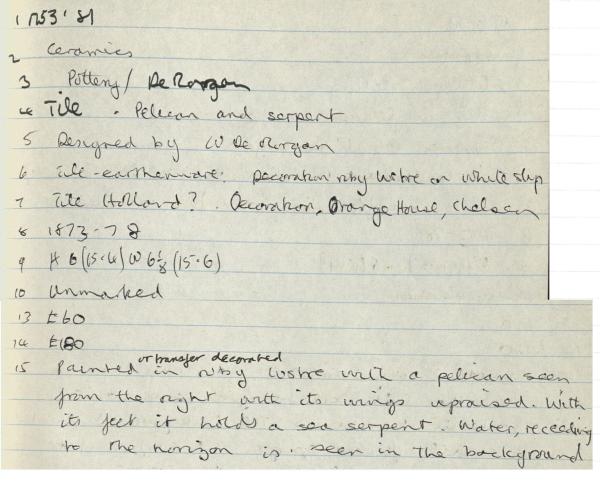 1 1753'81
2 Ceramics
3 Pottery / De Morgan
4 Tile - Pelican and serpent
5 Designed by W De Morgan
6 Tile - earthenware. Decoration ruby lustre on white slip
7 Tile Holland? . Decoration, Orange House, Chelsea
8 1873-78
9 H 6 (15.4) W 6⅛ (15.6)
10 Unmarked
13 £60
14 £180
or transfer decorated
15 Painted in ruby lustre with a pelican seen
from the right with its wings upraised. With
its feet it holds a sea serpent. Water, receding
to the horizon is seen in the background